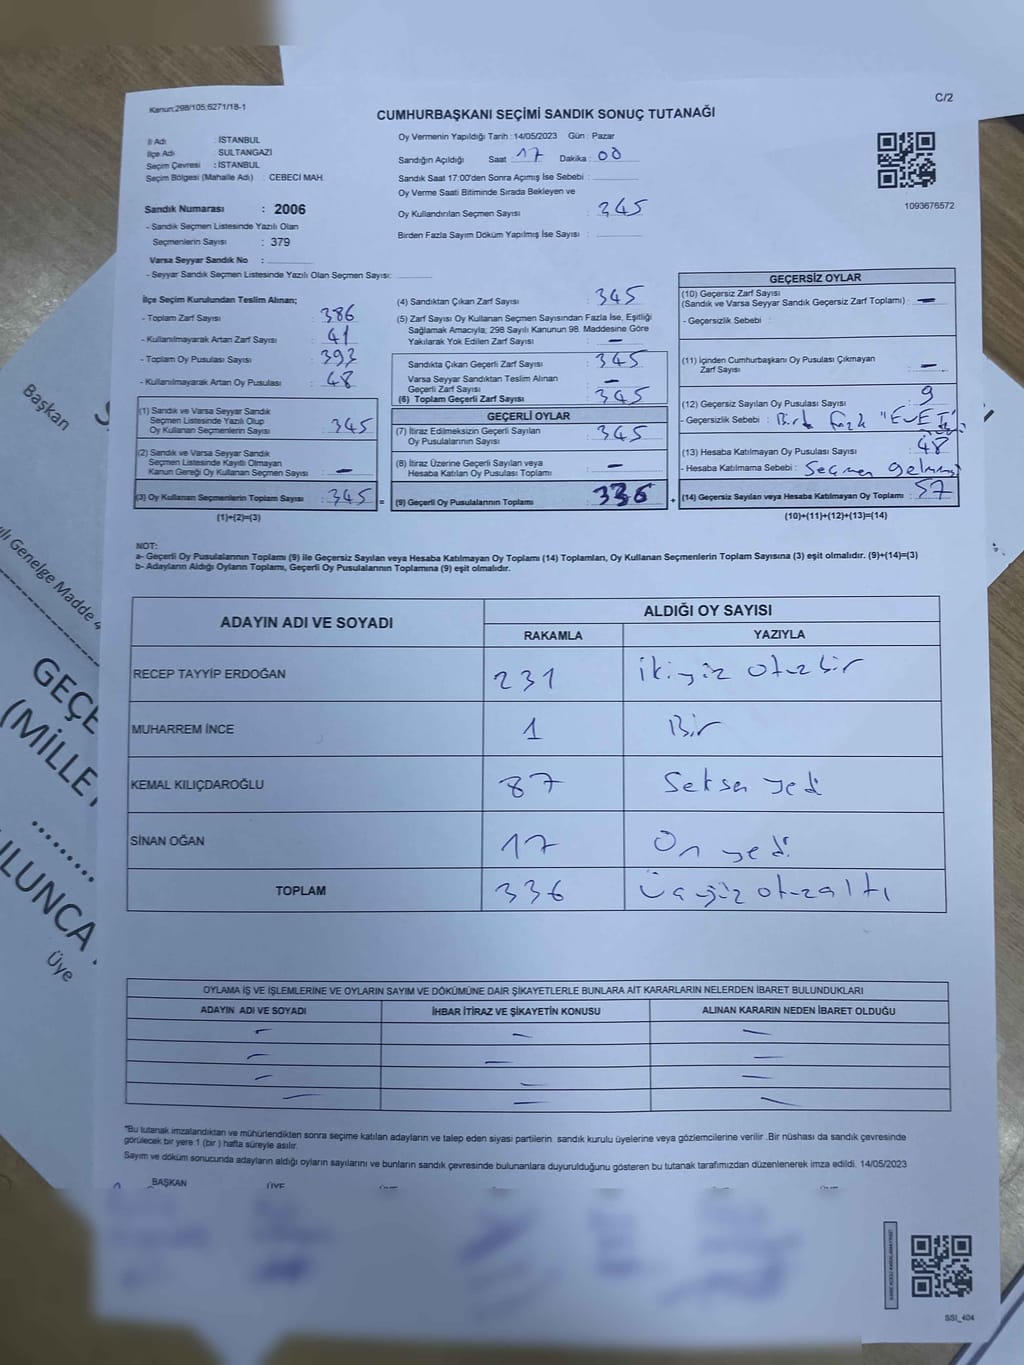 Kanun;298/105;6271/18-1
C/2
CUMHURBAŞKANI SEÇİMİ SANDIK SONUÇ TUTANAĞI
İl Adı : İSTANBUL
İlçe Adı : SULTANGAZİ
Seçim Çevresi : İSTANBUL
Seçim Bölgesi (Mahalle Adı) : CEBECİ MAH.
Sandık Numarası : 2006
- Sandık Seçmen Listesinde Yazılı Olan
Seçmenlerin Sayısı : 379
Varsa Seyyar Sandık No :
- Seyyar Sandık Seçmen Listesinde Yazılı Olan Seçmen Sayısı:
Oy Vermenin Yapıldığı Tarih :14/05/2023 Gün : Pazar
Sandığın Açıldığı Saat 17 Dakika : 00
Sandık Saat 17:00'den Sonra Açımış İse Sebebi :
Oy Verme Saati Bitiminde Sırada Bekleyen ve
Oy Kullandırılan Seçmen Sayısı : 345
Birden Fazla Sayım Döküm Yapılmış İse Sayısı :
1093676572
İlçe Seçim Kurulundan Teslim Alınan;
- Toplam Zarf Sayısı : 386
- Kullanılmayarak Artan Zarf Sayısı : 41
- Toplam Oy Pusulası Sayısı : 393
- Kullanılmayarak Artan Oy Pusulası : 48
(1) Sandık ve Varsa Seyyar Sandık
Seçmen Listesinde Yazılı Olup
Oy Kullanan Seçmenlerin Sayısı : 345
(2) Sandık ve Varsa Seyyar Sandık
Seçmen Listesinde Kayıtlı Olmayan
Kanun Gereği Oy Kullanan Seçmen Sayısı : –
(3) Oy Kullanan Seçmenlerin Toplam Sayısı : 345 =
(1)+(2)=(3)
(4) Sandıktan Çıkan Zarf Sayısı : 345
(5) Zarf Sayısı Oy Kullanan Seçmen Sayısından Fazla İse, Eşitliği
Sağlamak Amacıyla; 298 Sayılı Kanunun 98. Maddesine Göre
Yakılarak Yok Edilen Zarf Sayısı : –
Sandıkta Çıkan Geçerli Zarf Sayısı : 345
Varsa Seyyar Sandıktan Teslim Alınan
Geçerli Zarf Sayısı : –
(6) Toplam Geçerli Zarf Sayısı : 345
GEÇERLİ OYLAR
(7) İtiraz Edilmeksizin Geçerli Sayılan
Oy Pusulalarının Sayısı : 345
(8) İtiraz Üzerine Geçerli Sayılan veya
Hesaba Katılan Oy Pusulası Toplamı : –
(9) Geçerli Oy Pusulalarının Toplamı : 336 +
GEÇERSİZ OYLAR
(10) Geçersiz Zarf Sayısı
(Sandık ve Varsa Seyyar Sandık Geçersiz Zarf Toplamı) : –
- Geçersizlik Sebebi :
(11) İçinden Cumhurbaşkanı Oy Pusulası Çıkmayan
Zarf Sayısı : –
(12) Geçersiz Sayılan Oy Pusulası Sayısı : 9
- Geçersizlik Sebebi : "EVET"
(13) Hesaba Katılmayan Oy Pusulası Sayısı : 48
- Hesaba Katılmama Sebebi : Seçmen gelmemiş
(14) Geçersiz Sayılan veya Hesaba Katılmayan Oy Toplamı : 57
(10)+(11)+(12)+(13)=(14)
NOT:
a- Geçerli Oy Pusulalarının Toplamı (9) ile Geçersiz Sayılan veya Hesaba Katılmayan Oy Toplamı (14) Toplamları, Oy Kullanan Seçmenlerin Toplam Sayısına (3) eşit olmalıdır. (9)+(14)=(3)
b- Adayların Aldığı Oyların Toplamı, Geçerli Oy Pusulalarının Toplamına (9) eşit olmalıdır.
ADAYIN ADI VE SOYADI
ALDIĞI OY SAYISI
RAKAMLA YAZIYLA
RECEP TAYYİP ERDOĞAN 231 ikiyüz otuzbir
MUHARREM İNCE 1 Bir
KEMAL KILIÇDAROĞLU 87 Seksen yedi
SİNAN OĞAN 17 On yedi
TOPLAM 336 Üçyüz otuzaltı
OYLAMA İŞ VE İŞLEMLERİNE VE OYLARIN SAYIM VE DÖKÜMÜNE DAİR ŞİKAYETLERLE BUNLARA AİT KARARLARIN NELERDEN İBARET BULUNDUKLARI
ADAYIN ADI VE SOYADI İHBAR İTİRAZ VE ŞİKAYETİN KONUSU ALINAN KARARIN NEDEN İBARET OLDUĞU
"Bu tutanak imzalandıktan ve mühürlendikten sonra seçime katılan adayların ve talep eden siyasi partilerin sandık kurulu üyelerine veya gözlemcilerine verilir .Bir nüshası da sandık çevresinde
görülecek bir yere 1 (bir ) hafta süreyle asılır.
Sayım ve döküm sonucunda adayların aldığı oyların sayılarını ve bunların sandık çevresinde bulunanlara duyurulduğunu gösteren bu tutanak tarafımızdan düzenlenerek imza edildi. 14/05/2023
BAŞKAN ÜYE
SSI_404
Başkan
Genelge Madde 4
GEÇE
(MİLLE
ULUNCA
Üye